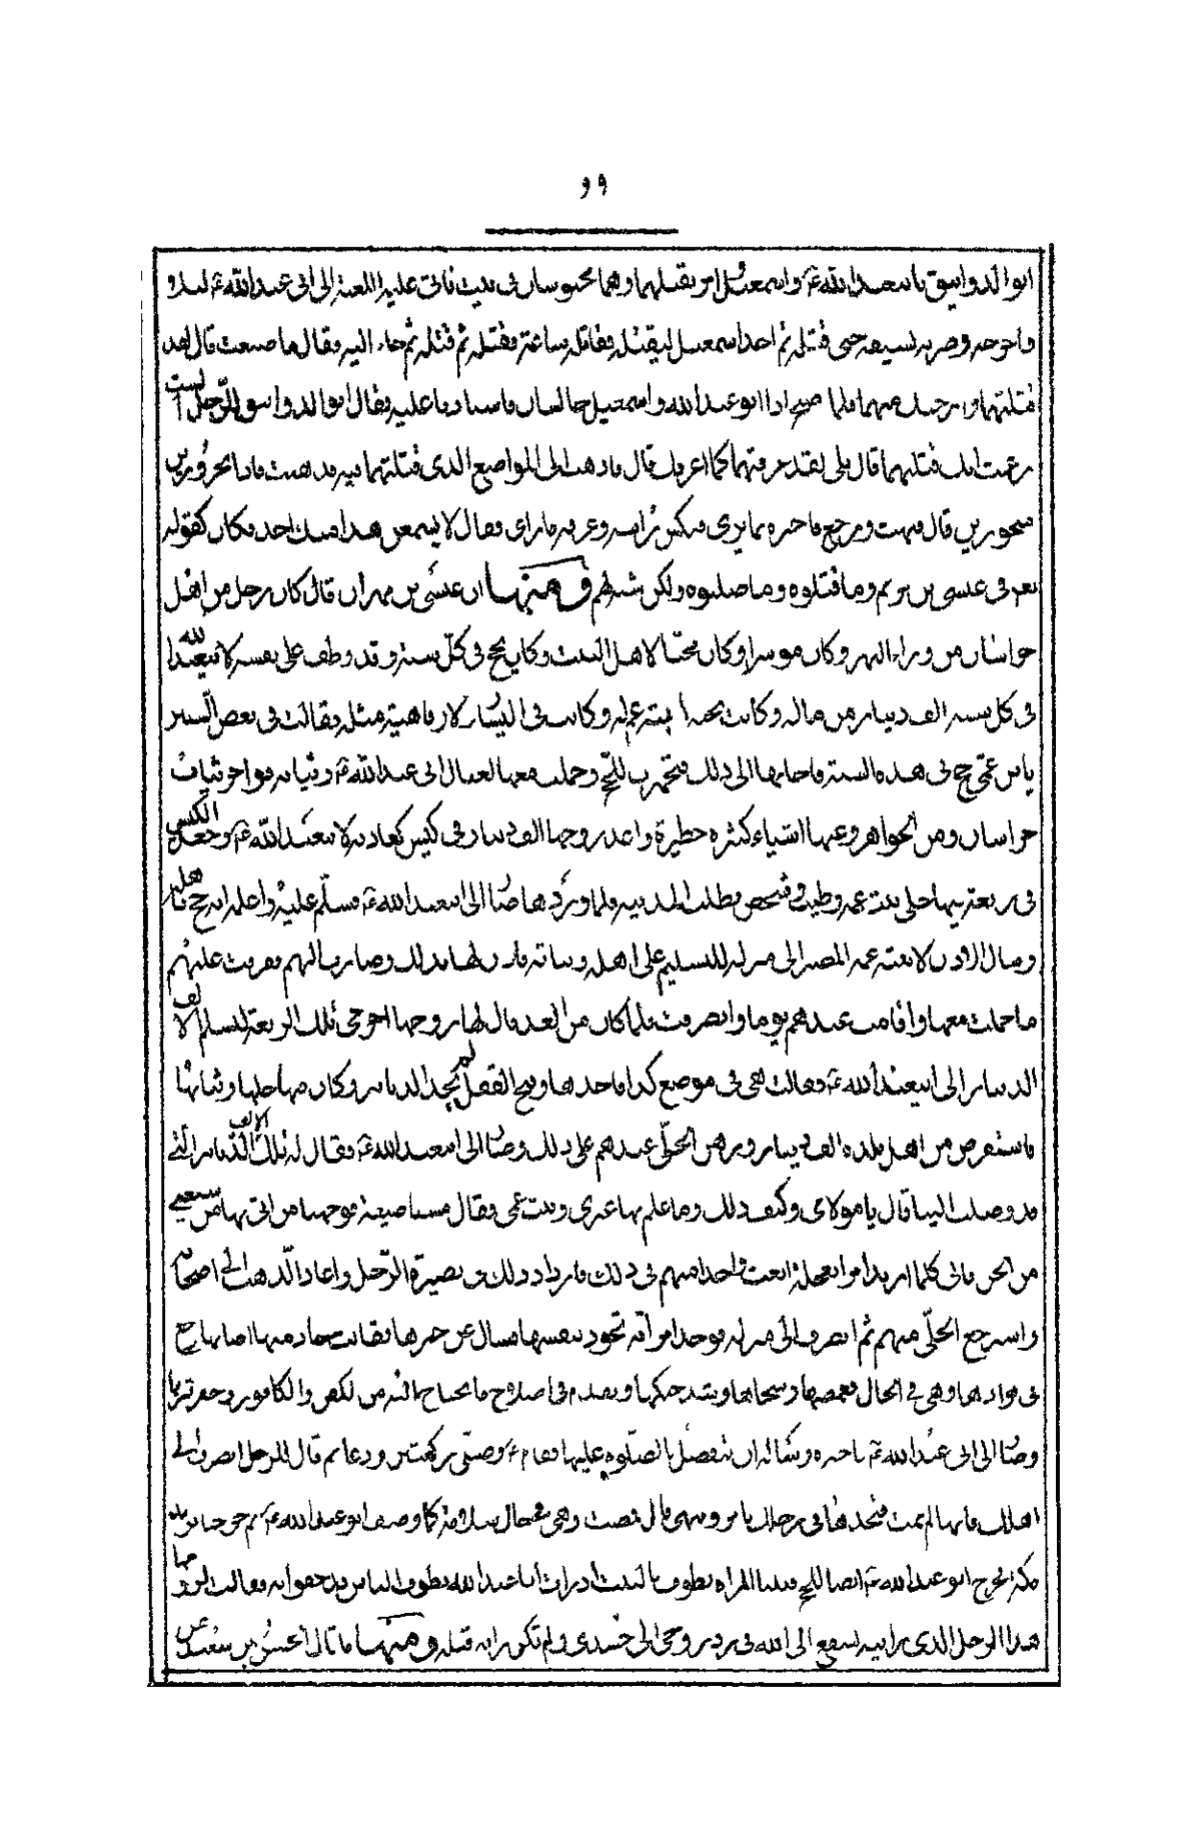 ٩٩
ابو الدوانيق بابيعبد الله ع واسمعيل امر بقتلهما وهما محبوسان فى بيت فاتى عليه اللعنة الى ابى عبد الله ع ليلا
واخرجه وضربه بسيفه حتى قتله ثم اخذ اسمعيل ليقتله فقاتله ساعة فقتله ثم قتله ثم جاء اليه وقال ما صنعت قال لقد
قتلتهما وارحتك منهما فلما اصبح اذا ابو عبد الله واسمعيل جالسان فاستاذنا عليه فقال ابو الدوانيق للرجل الست
زعمت انك قتلتهما قال بلى لقد عرفتهما كما اعرفك قال فاذهب الى المواضع الذى قتلتهما فيه فذهبت فاذا بجزورين
منحورين قال فبهت ورجع فاخبره بما يرى فنكس راسه وعرفه ما راى وقال لا يسمعن هذا منك احد فكان كقوله
تعه فى عيسى بن مريم وما قتلوه وما صلبوه ولكن شبه لهم ومنها ان عيسى بن مهران قال كان رجل من اهل
خراسان من وراء النهر وكان موسرا وكان محبا لاهل البيت وكان يحج فى كل سنة وقد وظف على نفسه لابيعبد الله
فى كل سنة الف دينار من ماله وكانت تحته ابنة عم له وكانت فى اليسار مثله فقالت فى بعض السنين
يابن عمى حج بى فى هذه السنة فاجابها الى ذلك فتجهزت للحج وحملت معها لعيال ابى عبد الله ع وبناته من فواخر ثياب
خراسان ومن الجواهر وغيرها اشياء كثيرة خطيرة واعد زوجها الف دينار فى كيس كعادته لابيعبد الله ع وجعل الكيس
فى ربعة فيها حلى بنت عمه وطيب وشخص يطلب المدينة فلما وردها صار الى ابيعبد الله ع فسلم عليه واعلمه انه حج باهله
وسال الاذن لابنة عمه المصير الى منزله للتسليم على اهله وبناته فاذن لها بذلك وصارت اليهم ففرقت عليهم
ما حملت معها واقامت عندهم يوما وانصرفت فلما كان من الغد قال لها زوجها اخرجى تلك الربعة لنسلم الالف
الدينار الى ابيعبد الله ع فقالت هى فى موضع كذا فاخذها وفتح القفل لم يجد الدنانير وكان فيها حليها وثيابها
فاستقرض من اهل بلده الف دينار ورهن الحلى عندهم على ذلك وصار الى ابيعبد الله ع فقال له تلك الالف الدنانير التى
قد وصلت الينا قال يا مولاى وكيف ذلك وما علم بها غيرى وبنت عمى فقال مستنا ضيقة فوجهنا من اتى بها من شيعتى
من الجن فانى كلما اريد امرا بعجلة ابعث واحدا منهم فى ذلك فازداد ذلك فى بصيرة الرجل واعاد الذهب الى اصحابه
واسترجع الحلى منهم ثم انصرف الى منزله فوجد امراته تجود بنفسها فسال عن خبرها فقالت خادمتها اصابها وجع
فى فوادها وهى فى الحال فغمضها وسجاها وشد حنكها وتقدم فى اصلاح ما يحتاج اليه من الكفن والكافور وحفر قبرها
وصار الى ابى عبد الله ع فاخبره وساله ان يتفضل بالصلوة عليها فقام ع وصلى ركعتين ودعا ثم قال للرجل انصرف الى
اهلك فانها لم تمت فتجدها فى رحلك تامر وتنهى قال فمضيت وهى فى حال سلامة كما وصف ابو عبد الله ع ثم خرج يريد
مكة وخرج ابو عبد الله ع ايضا للحج فبينا المراة تطوف بالبيت اذ رات ابا عبد الله يطوف والناس قد حفوا به فقالت لزوجها
هذا الرجل الذى رايته يشفع الى الله فى رد روحى الى جسدى ولم تكن راته قبله ومنها ما قال الحسن بن سعيد عن